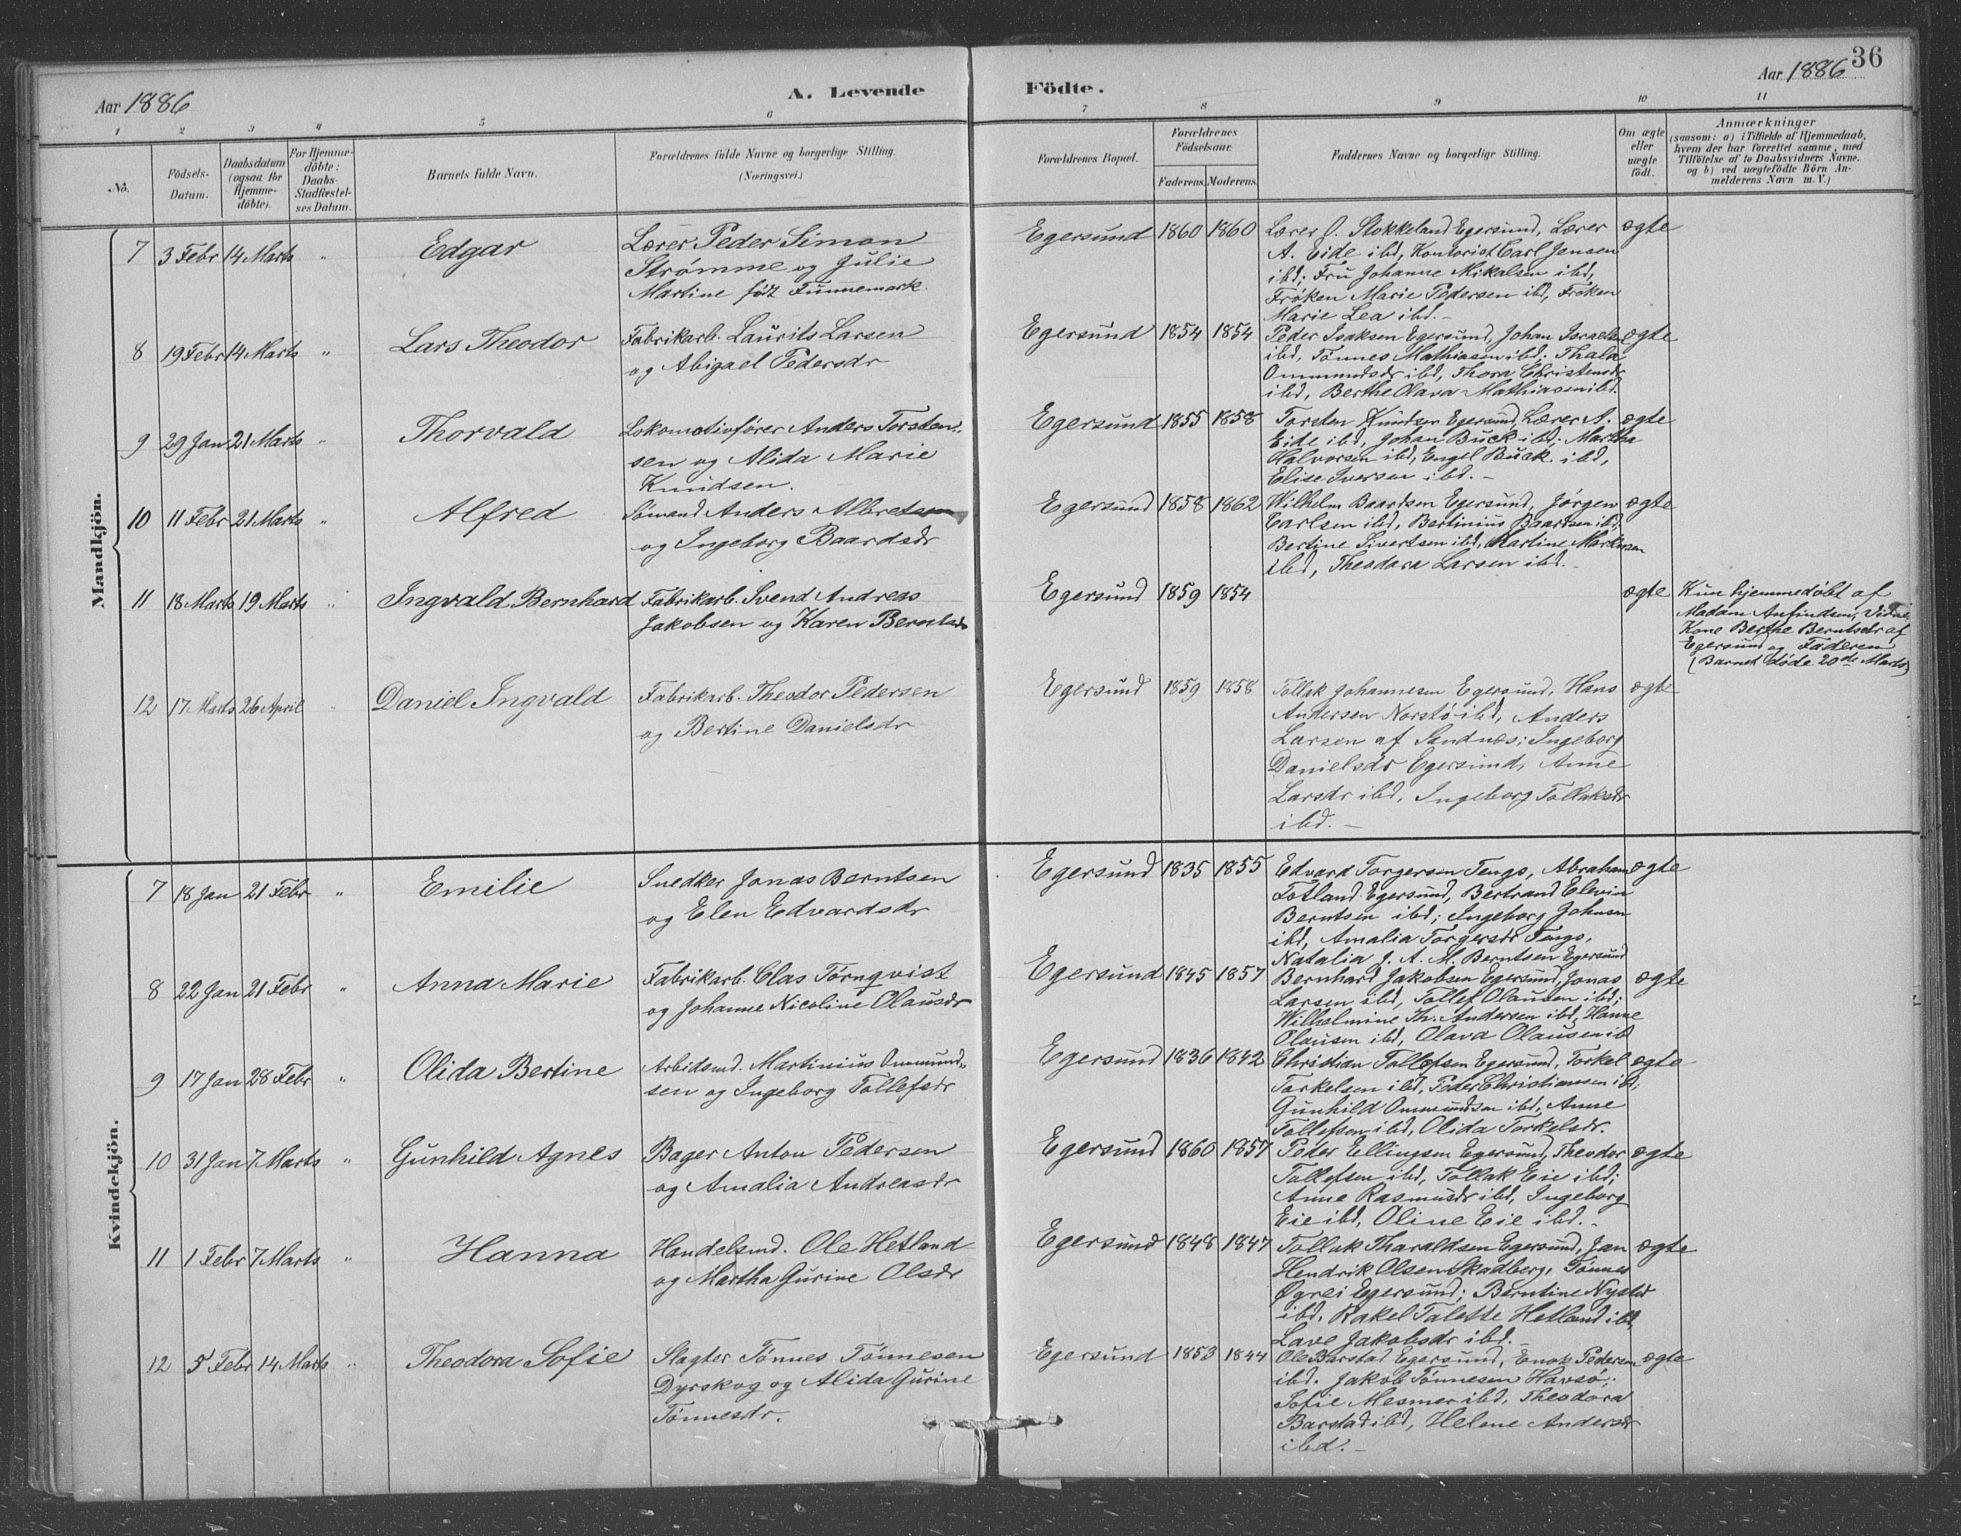 36
Aar 1886
A. Levende Födte.
Aar 1886
1 2 3 4 5 6 7 8 9 10 11
No.
Födsels-Datum.
Daabsdatum (ogsaa for Hjemme-döbte).
For Hjemme-döbte: Daabs-Stadfæstel-ses Datum.
Barnets fulde Navn.
Forældrenes fulde Navne og borgerlige Stilling.
(Næringsvei.)
Forældrenes Bopæl.
Forældrenes Födselsaar.
Faderens. Moderens.
Faddernes Navne og borgerlige Stilling.
Om ægte eller uægte födt.
Anmærkninger
(saasom: a) i Tilfælde af Hjemmedaab,
hvem der har forrettet samme, med
Tilföielse af to Daabsvidners Navne.
og b) ved uægtefödte Börn An-
melderens Navn m. V.)
Mandkjön.
7 3 Febr 14 Marts " Edgar
Lærer Peder Simon
Strømme og Julie
Martine født Funnemark.
Egersund 1860 1860
Lærer O. Stokkeland Egersund, Lærer
A. Eide ibd, Kontorist Carl Jensen
ibd; Fru Johanne Mikalsen ibd,
Frøken Marie Pedersen ibd, Frøken
Marie Lea ibd. -
ægte
8 19 Febr 14 Marts " Lars Theodor
Fabrikarb. Laurits Larsen
og Abigael Pedersdr
Egersund 1854 1854
Peder Isaksen Egersund, Johan Israelsen
ibd, Tønnes Mathiasen ibd; Thala
Ommundsdr ibd, Thora Christensdr
ibd, Berthe Olava Mathiasen ibd.
ægte
9 29 Jan 21 Marts " Thorvald
Lokomotivfører Anders Torsten-
sen og Alida Marie
Knudsen.
Egersund 1855 1858
Torsten Knudsen Egersund, Lærer A.
Eide ibd, Johan Buck ibd; Martha
Halvorsen ibd, Engel Buck. ibd,
Elise Iversen ibd. -
ægte
10 11 Febr 21 Marts " Alfred
Sømand Anders Albretsen
og Ingeborg Baardsdr
Egersund 1858 1862
Wilhelm Baardsen Egersund, Jørgen
Carlsen ibd, Bertinius Baardsen ibd,
Bertine Sivertsen ibd, Martine
ibd, Theodora Larsen ibd. -
ægte
11 18 Marts 19 Marts " Ingvald Bernhard
Fabrikarb. Svend Andreas
Jakobsen og Karen Berntsdr
Egersund 1859 1854
ægte
Kun hjemmedøbt af
Madam Anfindsen, Vidne
Kone Berthe Berntsdr af
Egersund og Faderen
(Barnet døde 20de Marts)
12 17 Marts 26 April " Daniel Ingvald
Fabrikarb. Theodor Pedersen
og Bertine Danielsdr
Egersund 1859 1858
Tollak Johannesen Egersund, Hans
Andersen Norstø ibd, Anders
Larsen af Sandnæs; Ingeborg
Danielsdr Egersund, Anne
Larsdr ibd, Ingeborg Tollaksdr
ibd. -
ægte
Kvindekjön.
7 18 Jan 21 Febr " Emilie
Snedker Jonas Berntsen
og Elen Edvardsdr
Egersund 1835 1855
Edvard Torgersen Tengs, Abraham
Fotland Egersund, Bertrand Elevin
Berntsen ibd; Ingeborg Johnsen
ibd, Amalia Torgersdr Tengs,
Natalia J. A. M. Berntsen Egersund
ægte
8 22 Jan 21 Febr " Anna Marie
Fabrikarb. Clas Törnqvist
og Johanne Nicoline Olausdr
Egersund 1845 1857
Bernhard Jakobsen Egersund, Jonas
Larsen ibd, Tollef Olausen ibd;
Wilhelmine Th. Andersen ibd, Hanne
Olausen ibd, Olava Olausen ibd
ægte
9 17 Jan 28 Febr " Olida Bertine
Arbidsmd. Martinius Ommund-
sen og Ingeborg Tollefsdr
Egersund 1836 1842
Christian Tollefsen Egersund, Torkel
Torkelsen ibd, Peder Christiansen ibd;
Gunhild Ommundsen ibd, Anne
Tollefsen ibd, Olida Torkelsdr.
ægte
10 31 Jan 7 Marts " Gunhild Agnes
Bager Anton Pedersen
og Amalia Andreasdr
Egersund 1860 1857
Peder Ellingsen Egersund, Theodor
Tollefsen ibd, Tollak Eie ibd;
Anne Rasmusdr ibd, Ingeborg
Eie ibd, Oline Eie ibd. -
ægte
11 1 Febr 7 Marts " Hanna
Handelsmd. Ole Hetland
og Martha Gurine Olsdr
Egersund 1848 1847
Tollak Tharaldsen Egersund, Jan
Hendrik Olsen Skadberg, Tønnes
Øgrei Egersund; Berntine Nysted
ibd, Rakel Talette Hetland ibd,
Lave Jakobsdr ibd. -
ægte
12 5 Febr 14 Marts " Theodora Sofie
Slagter Tønnes Tønnesen
Dyrskog og Alida Gurine
Tønnesdr.
Egersund 1853 1844
Ole Barstad Egersund, Enok Pedersen
ibd. Jakob Tønnesen Havsø;
Sofie Mesmer ibd, Theodora
Barstad ibd, Helene Andersdr
ibd. -
ægte